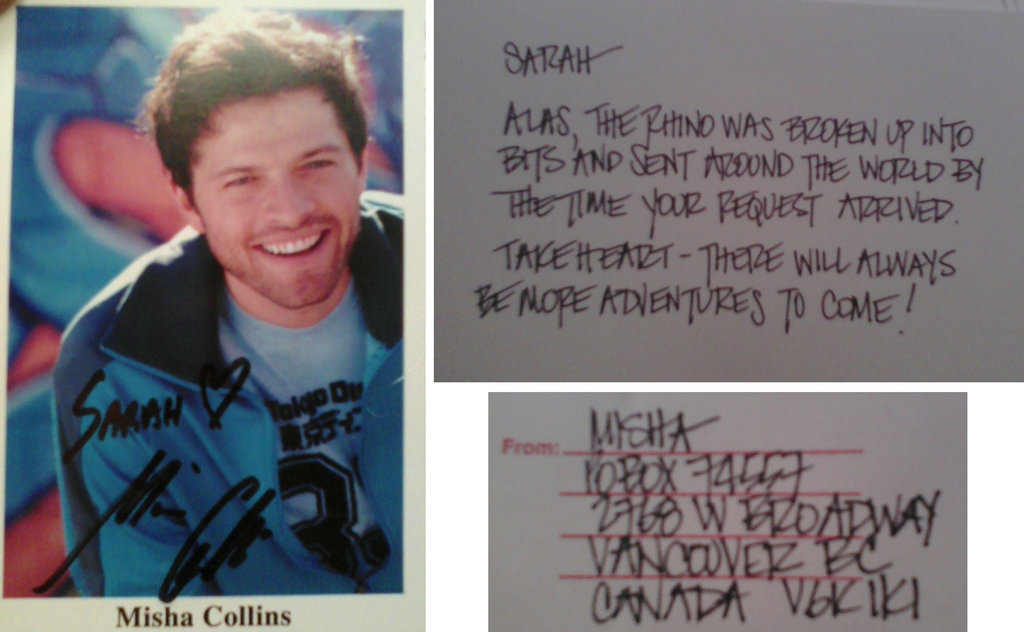 SARAH
Misha Collins
Tokyo Di
東京
3
Misha Collins
SARAH
ALAS, THE RHINO WAS BROKEN UP INTO
BITS AND SENT AROUND THE WORLD BY
THE TIME YOUR REQUEST ARRIVED.
TAKE HEART - THERE WILL ALWAYS
BE MORE ADVENTURES TO COME!
From: MISHA
PO BOX 74557
2768 W BROADWAY
VANCOUVER BC
CANADA V6K 1K1